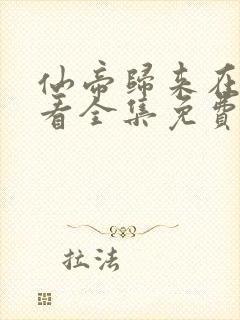 仙帝歸來在
看全集免費
拉法